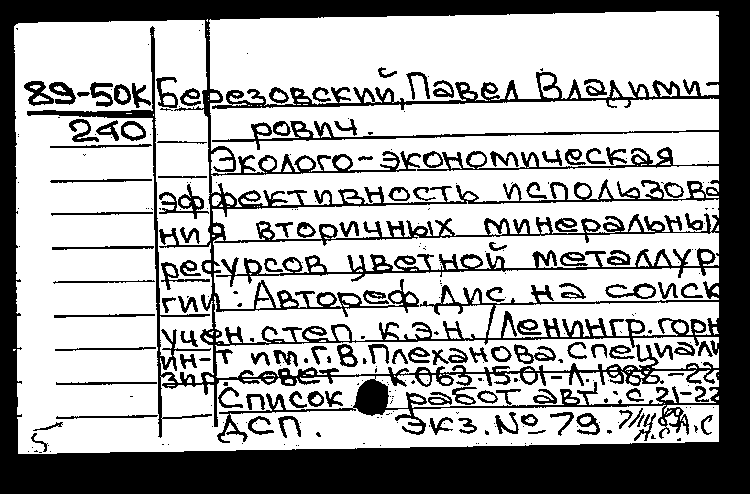 89-50К Березовский, Павел Владими-
240 рович.
Эколого-экономическая
эффективность использова
ния вторичных минеральных
ресурсов цветной металлур-
гии: Автореф. дис. на соиск
учен. степ. к.э.н. / Ленингр. горн
ин-т им. Г.В. Плеханова. Специали
зир. совет К.063.15.01-Л., 1988.-22
Список работ авт.: с. 21-22
ДСП. Экз. № 79.
5